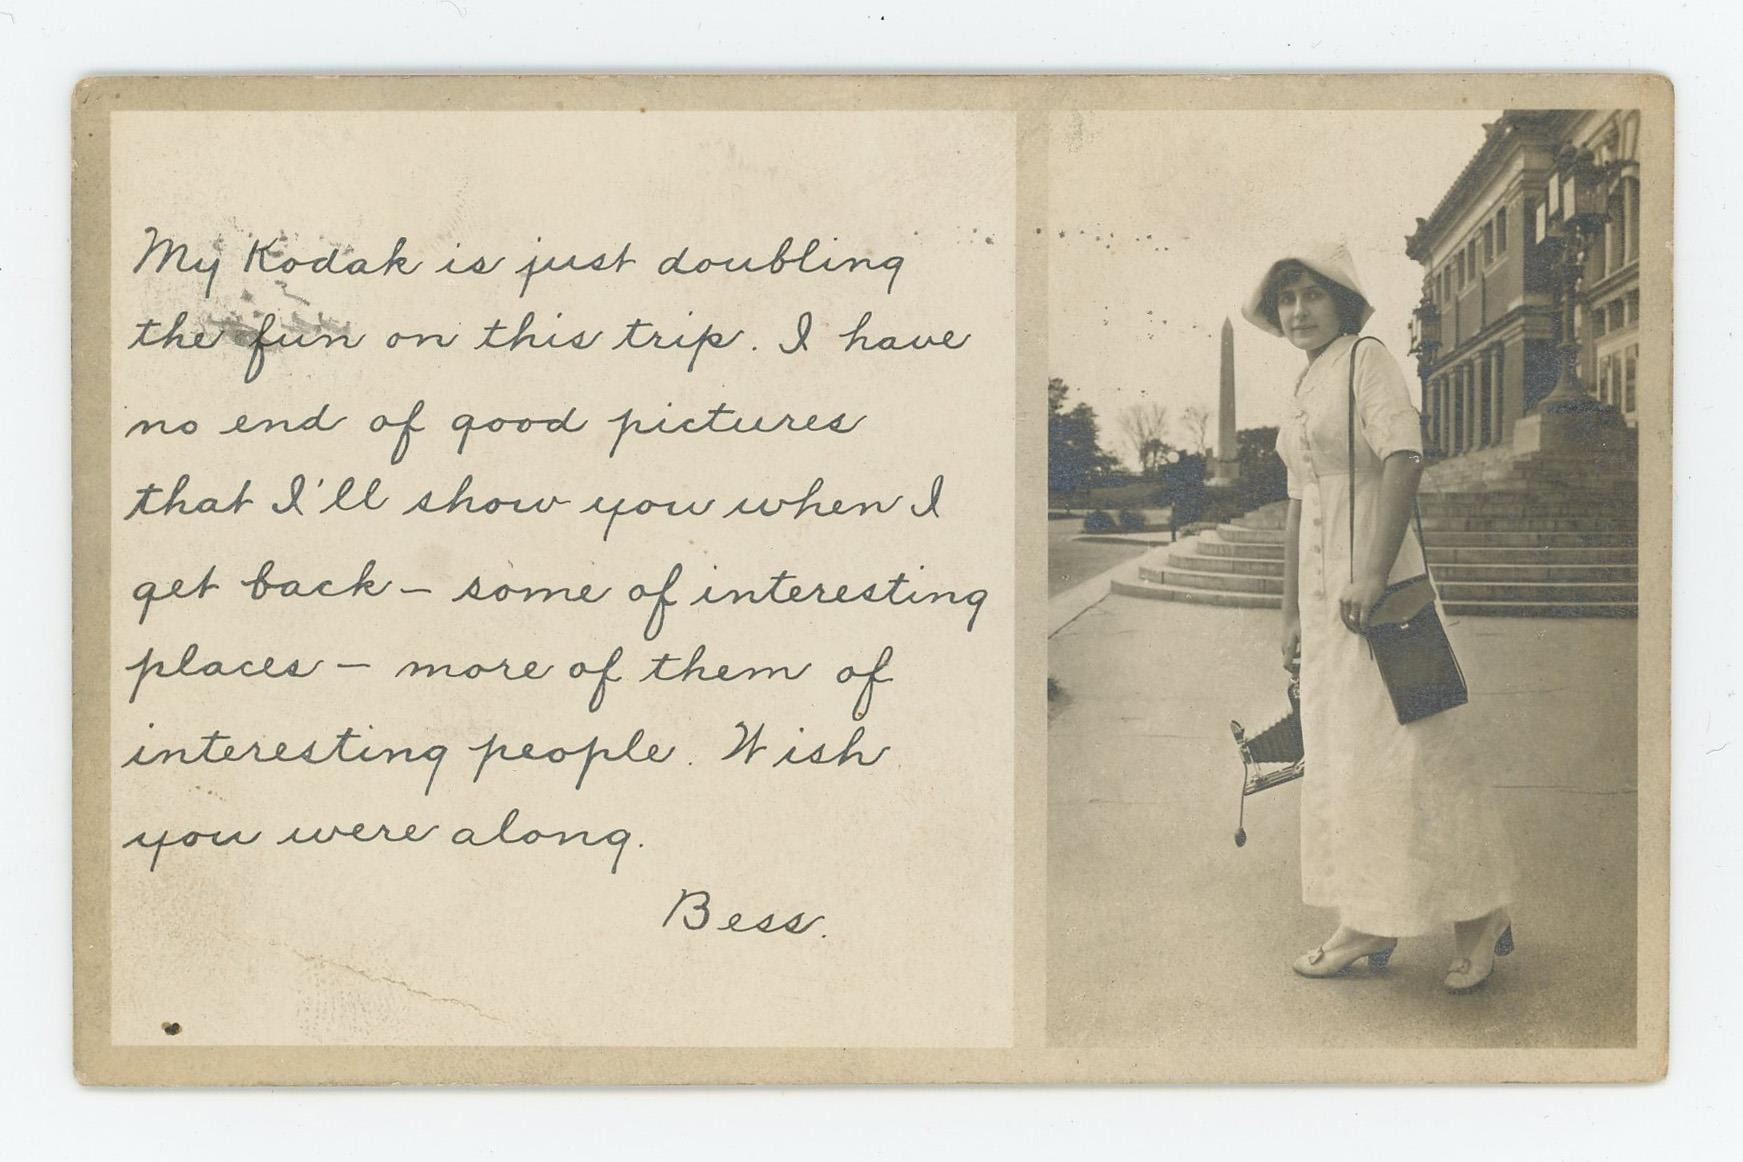 My Kodak is just doubling
the fun on this trip. I have
no end of good pictures
that I'll show you when I
get back – some of interesting
places – more of them of
interesting people. Wish
you were along.
Bess.